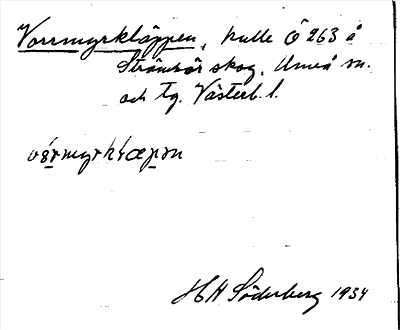 Vorrmyrkläppen, kulle Ö 263 å
Strömbär skog, Umeå sn.
och tg. Västerb. l.
vórmyrkłæpən
H H Söderberg 1934